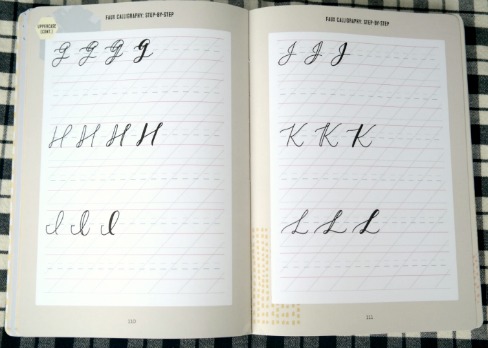 FAUX CALLIGRAPHY: STEP-BY-STEP
UPPERCASE
(CONT.)
G G G G
H H H H
I I I
110
FAUX CALLIGRAPHY: STEP-BY-STEP
J J J
K K K
L L L
111